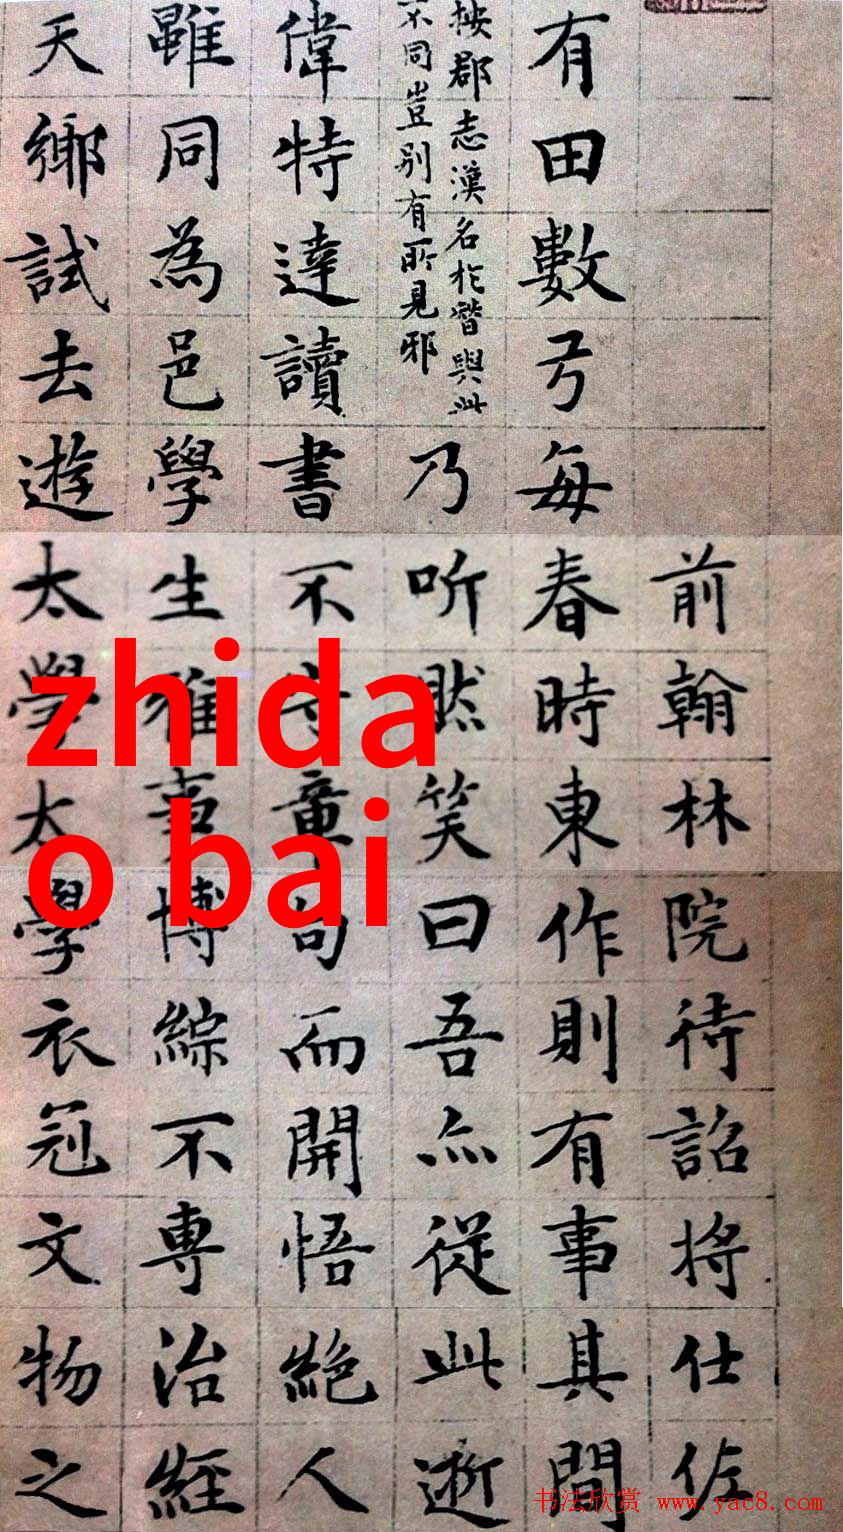 前翰林院待詔將仕佐
有田數弓每春時東作則有事其間
按郡志漢名於與此
不同豈別有所見邪
乃听然笑曰吾亦從此逝
偉特達讀書不守章句而開悟絕人
雖同為邑學生雅事博綜不專治經
天鄉試去遊太學太學衣冠文物之
zhida
o bai
书法欣赏 www.yac8.com